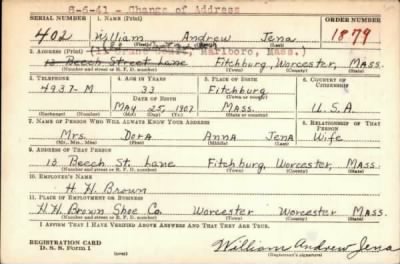 8-6-41 - Change of Address
SERIAL NUMBER 1. NAME (Print) ORDER NUMBER
402 William Andrew Jena 1879
(First) (Middle) (Last)
2. ADDRESS (Print) Marlboro, Mass.)
13 Beech Street Lane Fitchburg, Worcester, Mass.
(Number and street or R. F. D. number) (Town) (County) (State)
3. TELEPHONE 4. AGE IN YEARS 5. PLACE OF BIRTH 6. COUNTRY OF CITIZENSHIP
4937-M 33 Fitchburg
DATE OF BIRTH (Town or county)
May 25, 1907 Mass. U.S.A
(Exchange) (Number) (Mo.) (Day) (Yr.) (State or country)
7. NAME OF PERSON WHO WILL ALWAYS KNOW YOUR ADDRESS 8. RELATIONSHIP OF THAT PERSON
Mrs. Dora Anna Jena Wife
(Mr., Mrs., Miss) (First) (Middle) (Last)
9. ADDRESS OF THAT PERSON
13 Beech St. Lane Fitchburg, Worcester, Mass.
(Number and street or R. F. D. number) (Town) (County) (State)
10. EMPLOYER'S NAME
H. H. Brown
11. PLACE OF EMPLOYMENT OR BUSINESS
H.H. Brown Shoe Co. Worcester Worcester Mass.
(Number and street or R. F. D. number) (Town) (County) (State)
I AFFIRM THAT I HAVE VERIFIED ABOVE ANSWERS AND THAT THEY ARE TRUE.
REGISTRATION CARD
D. S. S. Form 1 William Andrew Jena
(Registrant's signature)